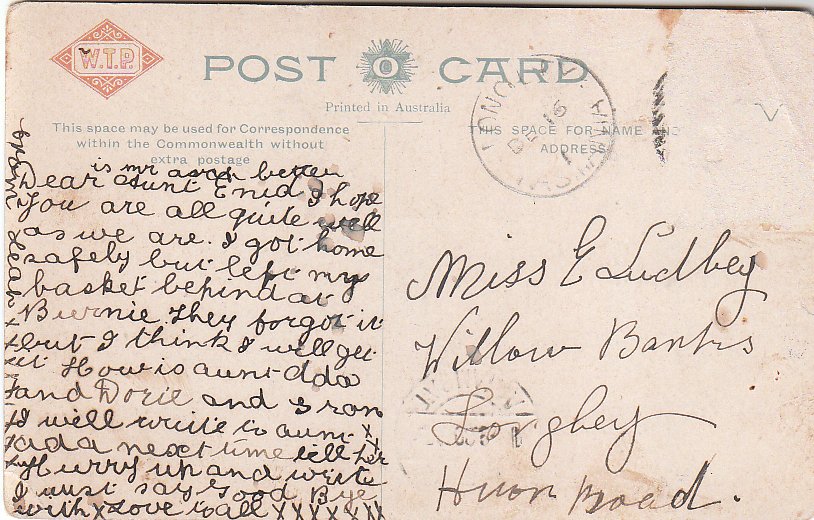 W.T.P.
POST CARD
Printed in Australia
This space may be used for Correspondence
within the Commonwealth without
extra postage
THIS SPACE FOR NAME AND
ADDRESS
is mr better
Dear Aunt Enid I hope
you are all quite well
as we are. I got home
safely but left my
basket behind at
Burnie. they forgot it
but I think I will get
it How is aunt Ada
and Dorie and Gran
I will write to aunt
ada next time tell her
Hurry up and write
I must say Good Bye
with X Love to all XXXXXXX
Miss E Ludbey
Willow Banks
Longley
Huon Road.